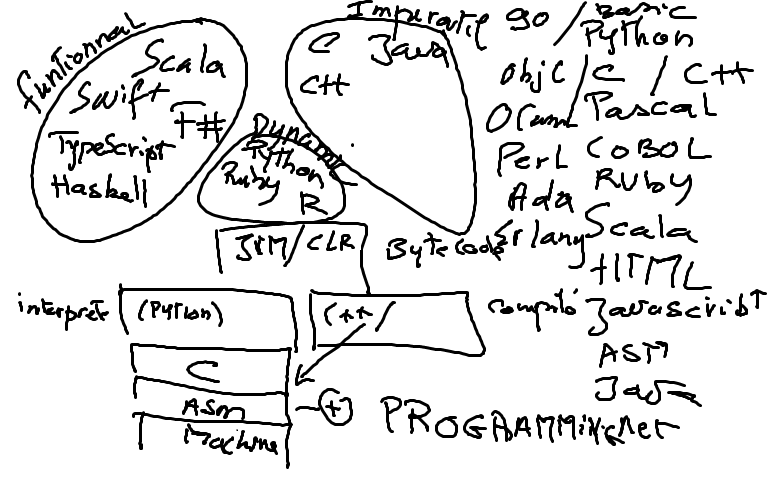 funtionnal
Scala
Swift
F#
TypeScript
Haskell
Imperatif
C Java
C++
Dynamic
Python
Ruby
R
go / Basic
Python
objC / C / C++
Ocaml Pascal
Perl COBOL
Ruby
Ada
Erlang Scala
HTML
Javascribt
ASM
Java
JVM/CLR Bytecode
interprete (Python) C++/ compilé
C
ASM
Machine
PROGRAMMING.Net